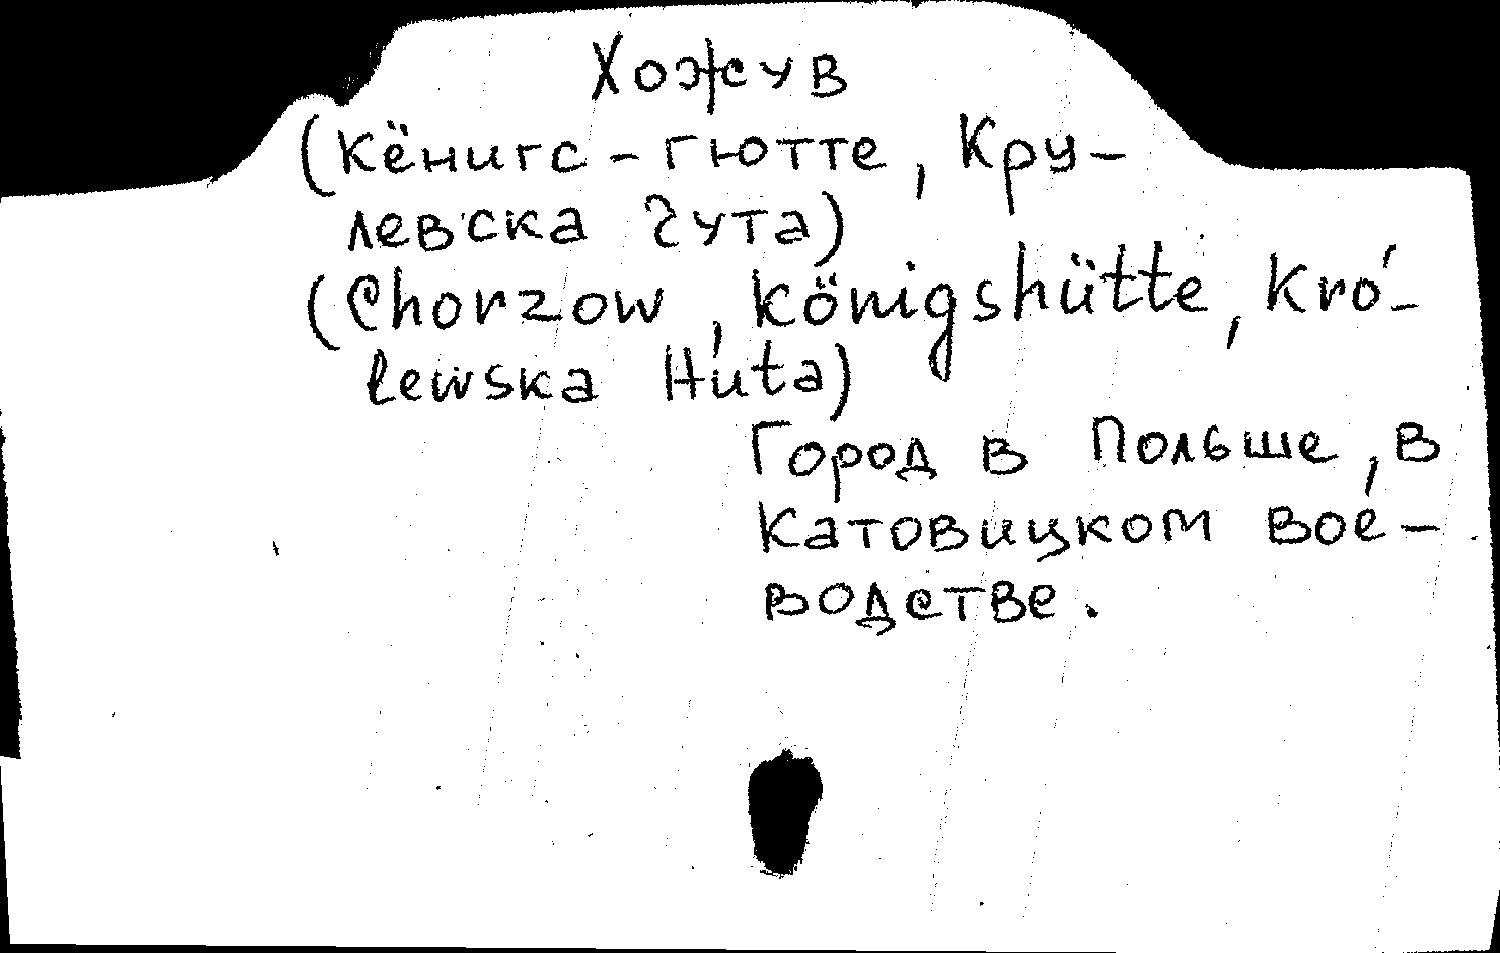 Хожув
(Кёнигс-гютте, Кру-
левска Гута)
(Chorzow, Königshütte, Kró-
lewska Huta)
Город в Польше, в
Катовицком вое-
водстве.